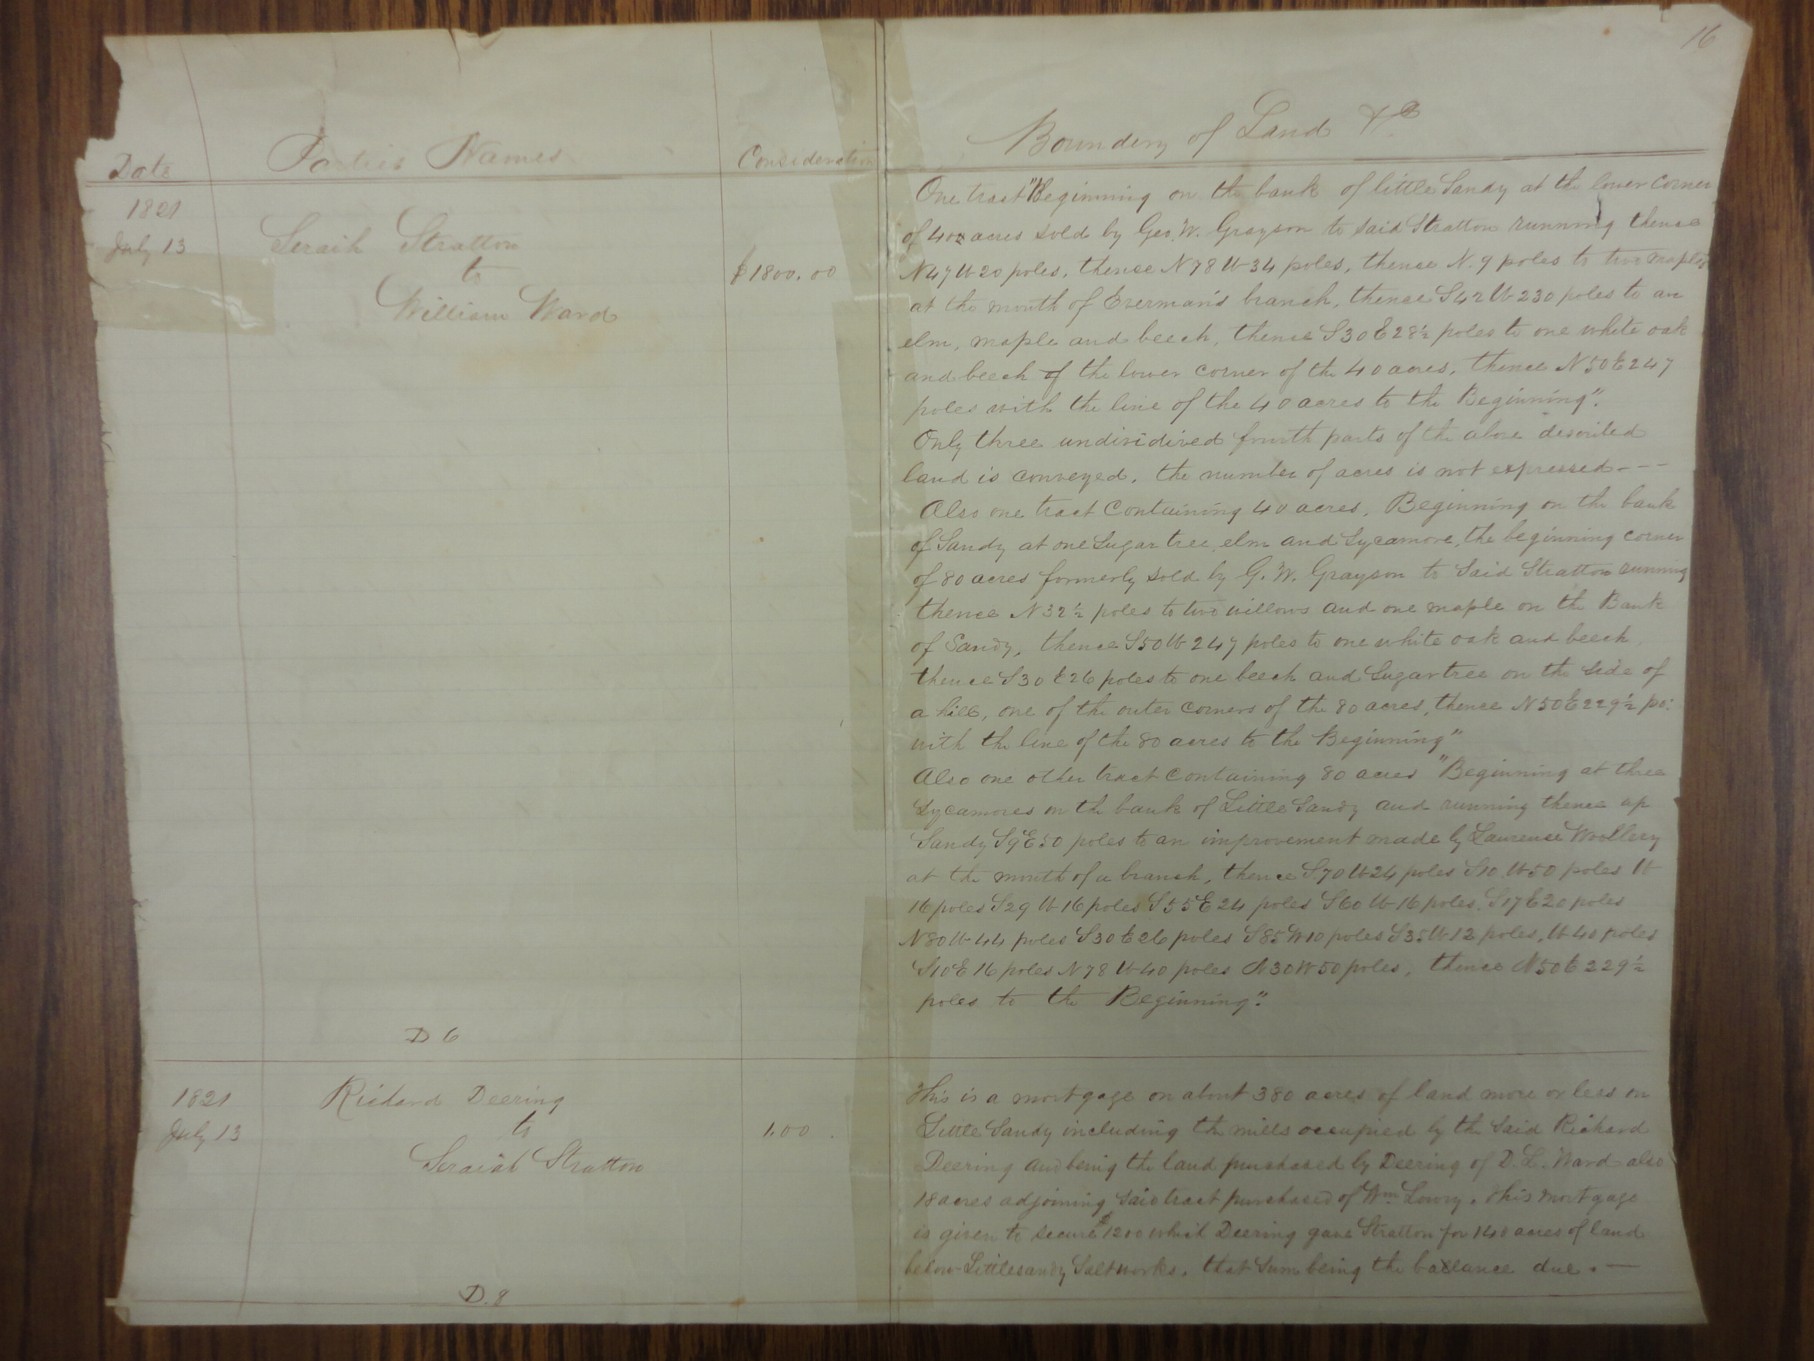 16
Date
Parties Names
Consideration
Boundery of Land &c
1821
July 13
Seraih Stratton
to
William Ward
$1800.00
One tract "Beginning on the bank of little Sandy at the lower corner
of 40 acres sold by Geo. W. Grayson to said Stratton running thence
N47W20 poles, thence N78W34 poles, thence N.9 poles to two maples
at the mouth of Everman's branch, thence S42W230 poles to an
elm, maple and beech, thence S30E28½ poles to one white oak
and beech of the lower corner of the 40 acres, thence N50E247
poles with the line of the 40 acres to the Beginning".
Only three undividived fourth parts of the above described
land is conveyed, the number of acres is not expressed.--
Also one tract containing 40 acres, Beginning on the bank
of Sandy at one Sugar tree, elm and Sycamore, the beginning corner
of 80 acres formerly sold by G. W. Grayson to Said Stratton running
thence N32½ poles to two willows and one maple on the Bank
of Sandy, thence S50W247 poles to one white oak and beech
thence S30E26 poles to one beech and Sugartree on the side of
a hill, one of the outer corners of the 80 acres, thence N50E229½ po:
with the line of the 80 acres to the Beginning"
Also one other tract containing 80 acres "Beginning at three
Sycamores on the bank of Little Sandy and running thence up
Sandy S9E50 poles to an improvement made by Laurence Woollery
at the mouth of a branch, thence S70W24 poles S10W50 poles W
16 poles S29W16 poles S55E24 poles S60W16 poles, S17E20 poles
N80W44 poles S30E26 poles S85W10 poles S35W12 poles, W40 poles
S10E16 poles N78W40 poles N30W50 poles, thence N50E229½
poles to the Beginning".
D 6
1821
July 13
Richard Deering
to
Seraiah Stratton
1.00
This is a mortgage on about 380 acres of land more or less on
Little Sandy including the mills occupied by the Said Richard
Deering and being the land purchased by Deering of D. L. Ward also
18 acres adjoining said tract purchased of Wm Lowry. This mortgage
is given to secure $1200 which Deering gave Stratton for 140 acres of land
below Littlesandy Saltworks, that Sum being the ballance due.—
D. 8